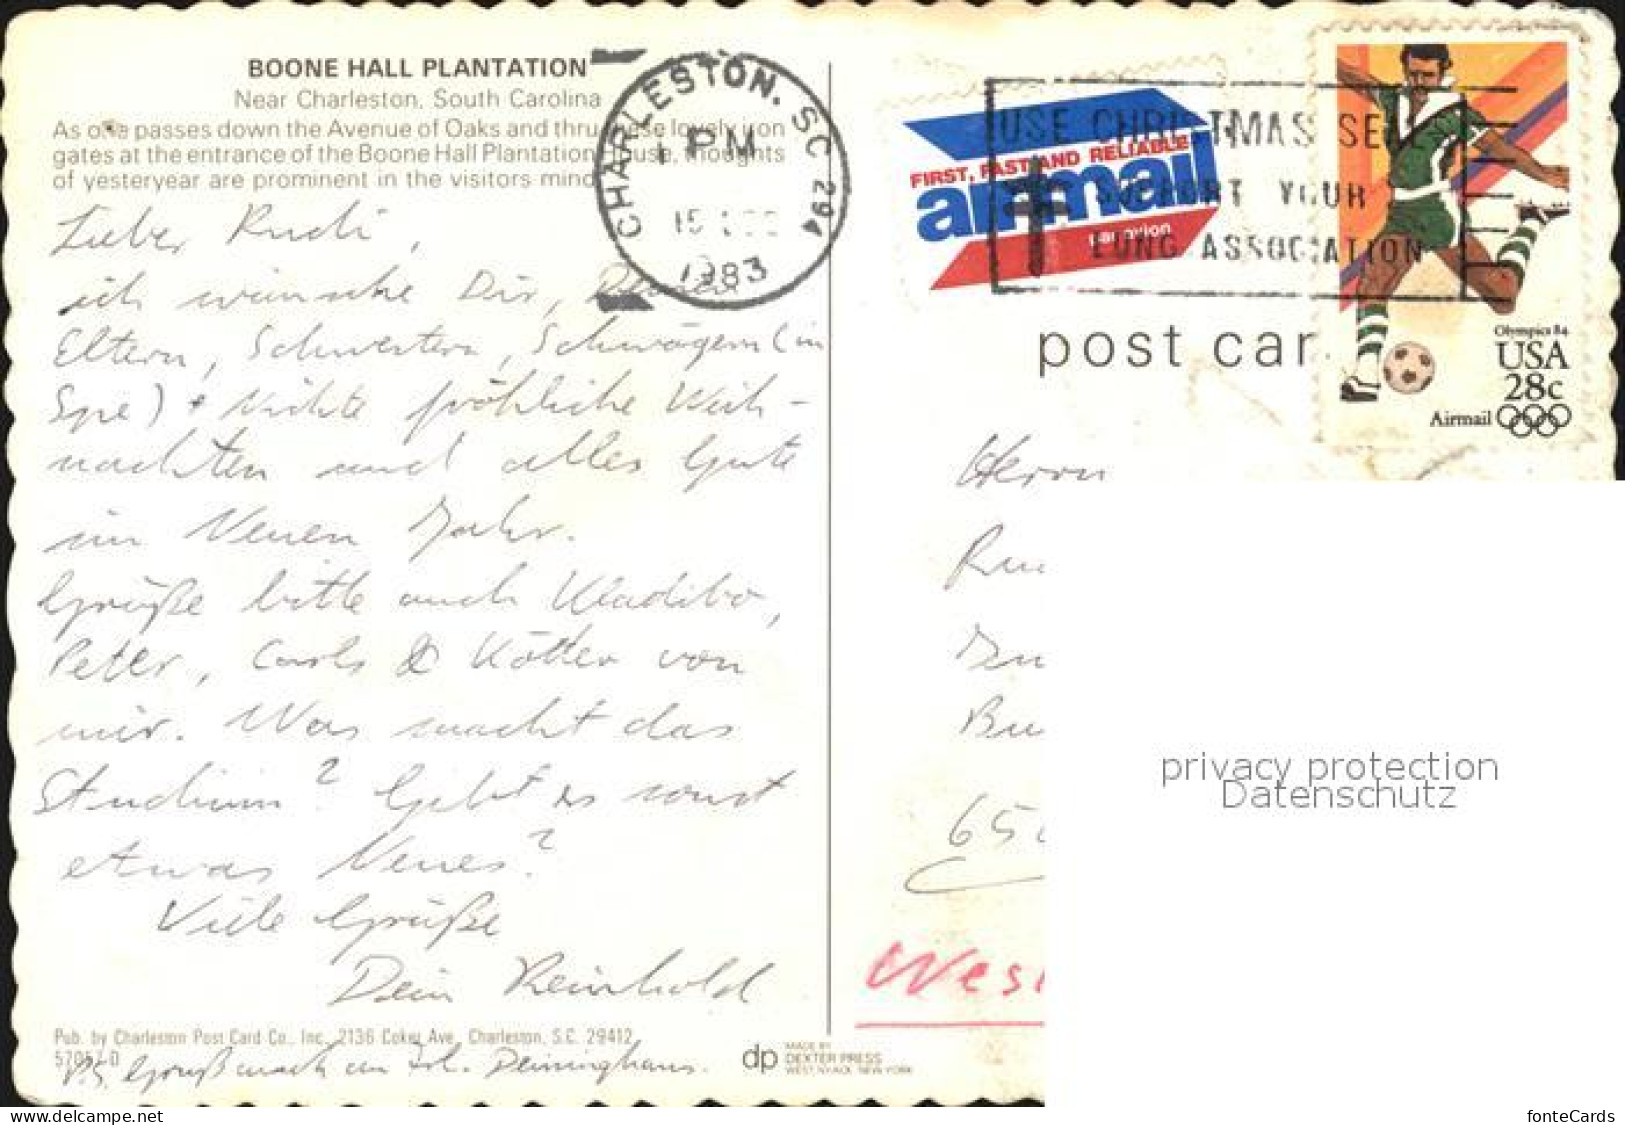 BOONE HALL PLANTATION
Near Charleston, South Carolina
As one passes down the Avenue of Oaks and thru these lovely iron
gates at the entrance of the Boone Hall Plantation House, thoughts
of yesteryear are prominent in the visitors mind
Lieber Rudi,
ich wünsche Dir, Deinen
Eltern, Schwestern, Schwägern (in
Spe) + Nichte fröhliche Weih-
nachten und alles Gute
im Neuen Jahr.
Grüße bitte auch Kladibo,
Peter, Carls & Kötter von
mir. Was macht das
Studium? Gibt es sonst
etwas Neues?
Viele Grüße
Dein Reinhold
Pub. by Charleston Post Card Co., Inc., 2136 Coker Ave., Charleston, S.C. 29412
57057-D
P.S. Gruß auch an Frl. Deminghaus.
dp
MADE BY
DEXTER PRESS
WEST NYACK, NEW YORK
CHARLESTON, SC 294
PM
15
1983
FIRST, FAST AND RELIABLE
airmail
par avion
USE CHRISTMAS SEALS
SUPPORT YOUR
LUNG ASSOCIATION
post car
Olympics 84
USA
28c
Airmail
Herrn
Ru
Bu
65
Wes
privacy protection
Datenschutz
fonteCards